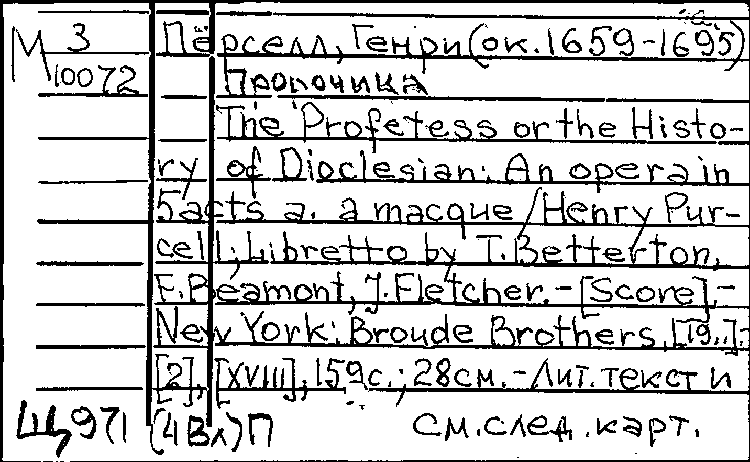 М 3 Пёрселл, Генри (ок. 1659-1695)
10072 Пророчица
The Profetess or the Histo-
ry of Dioclesian: An opera in
5 acts a. a macque / Henry Pur-
cell; Libretto by T. Betterton,
F. Beamont, J. Fletcher. - [Score]. -
New York: Broude Brothers, [19..]. -
[2], [XVIII], 159с.; 28см. - Лит. текст и
Щ971 (4Вл)П см. след. карт.